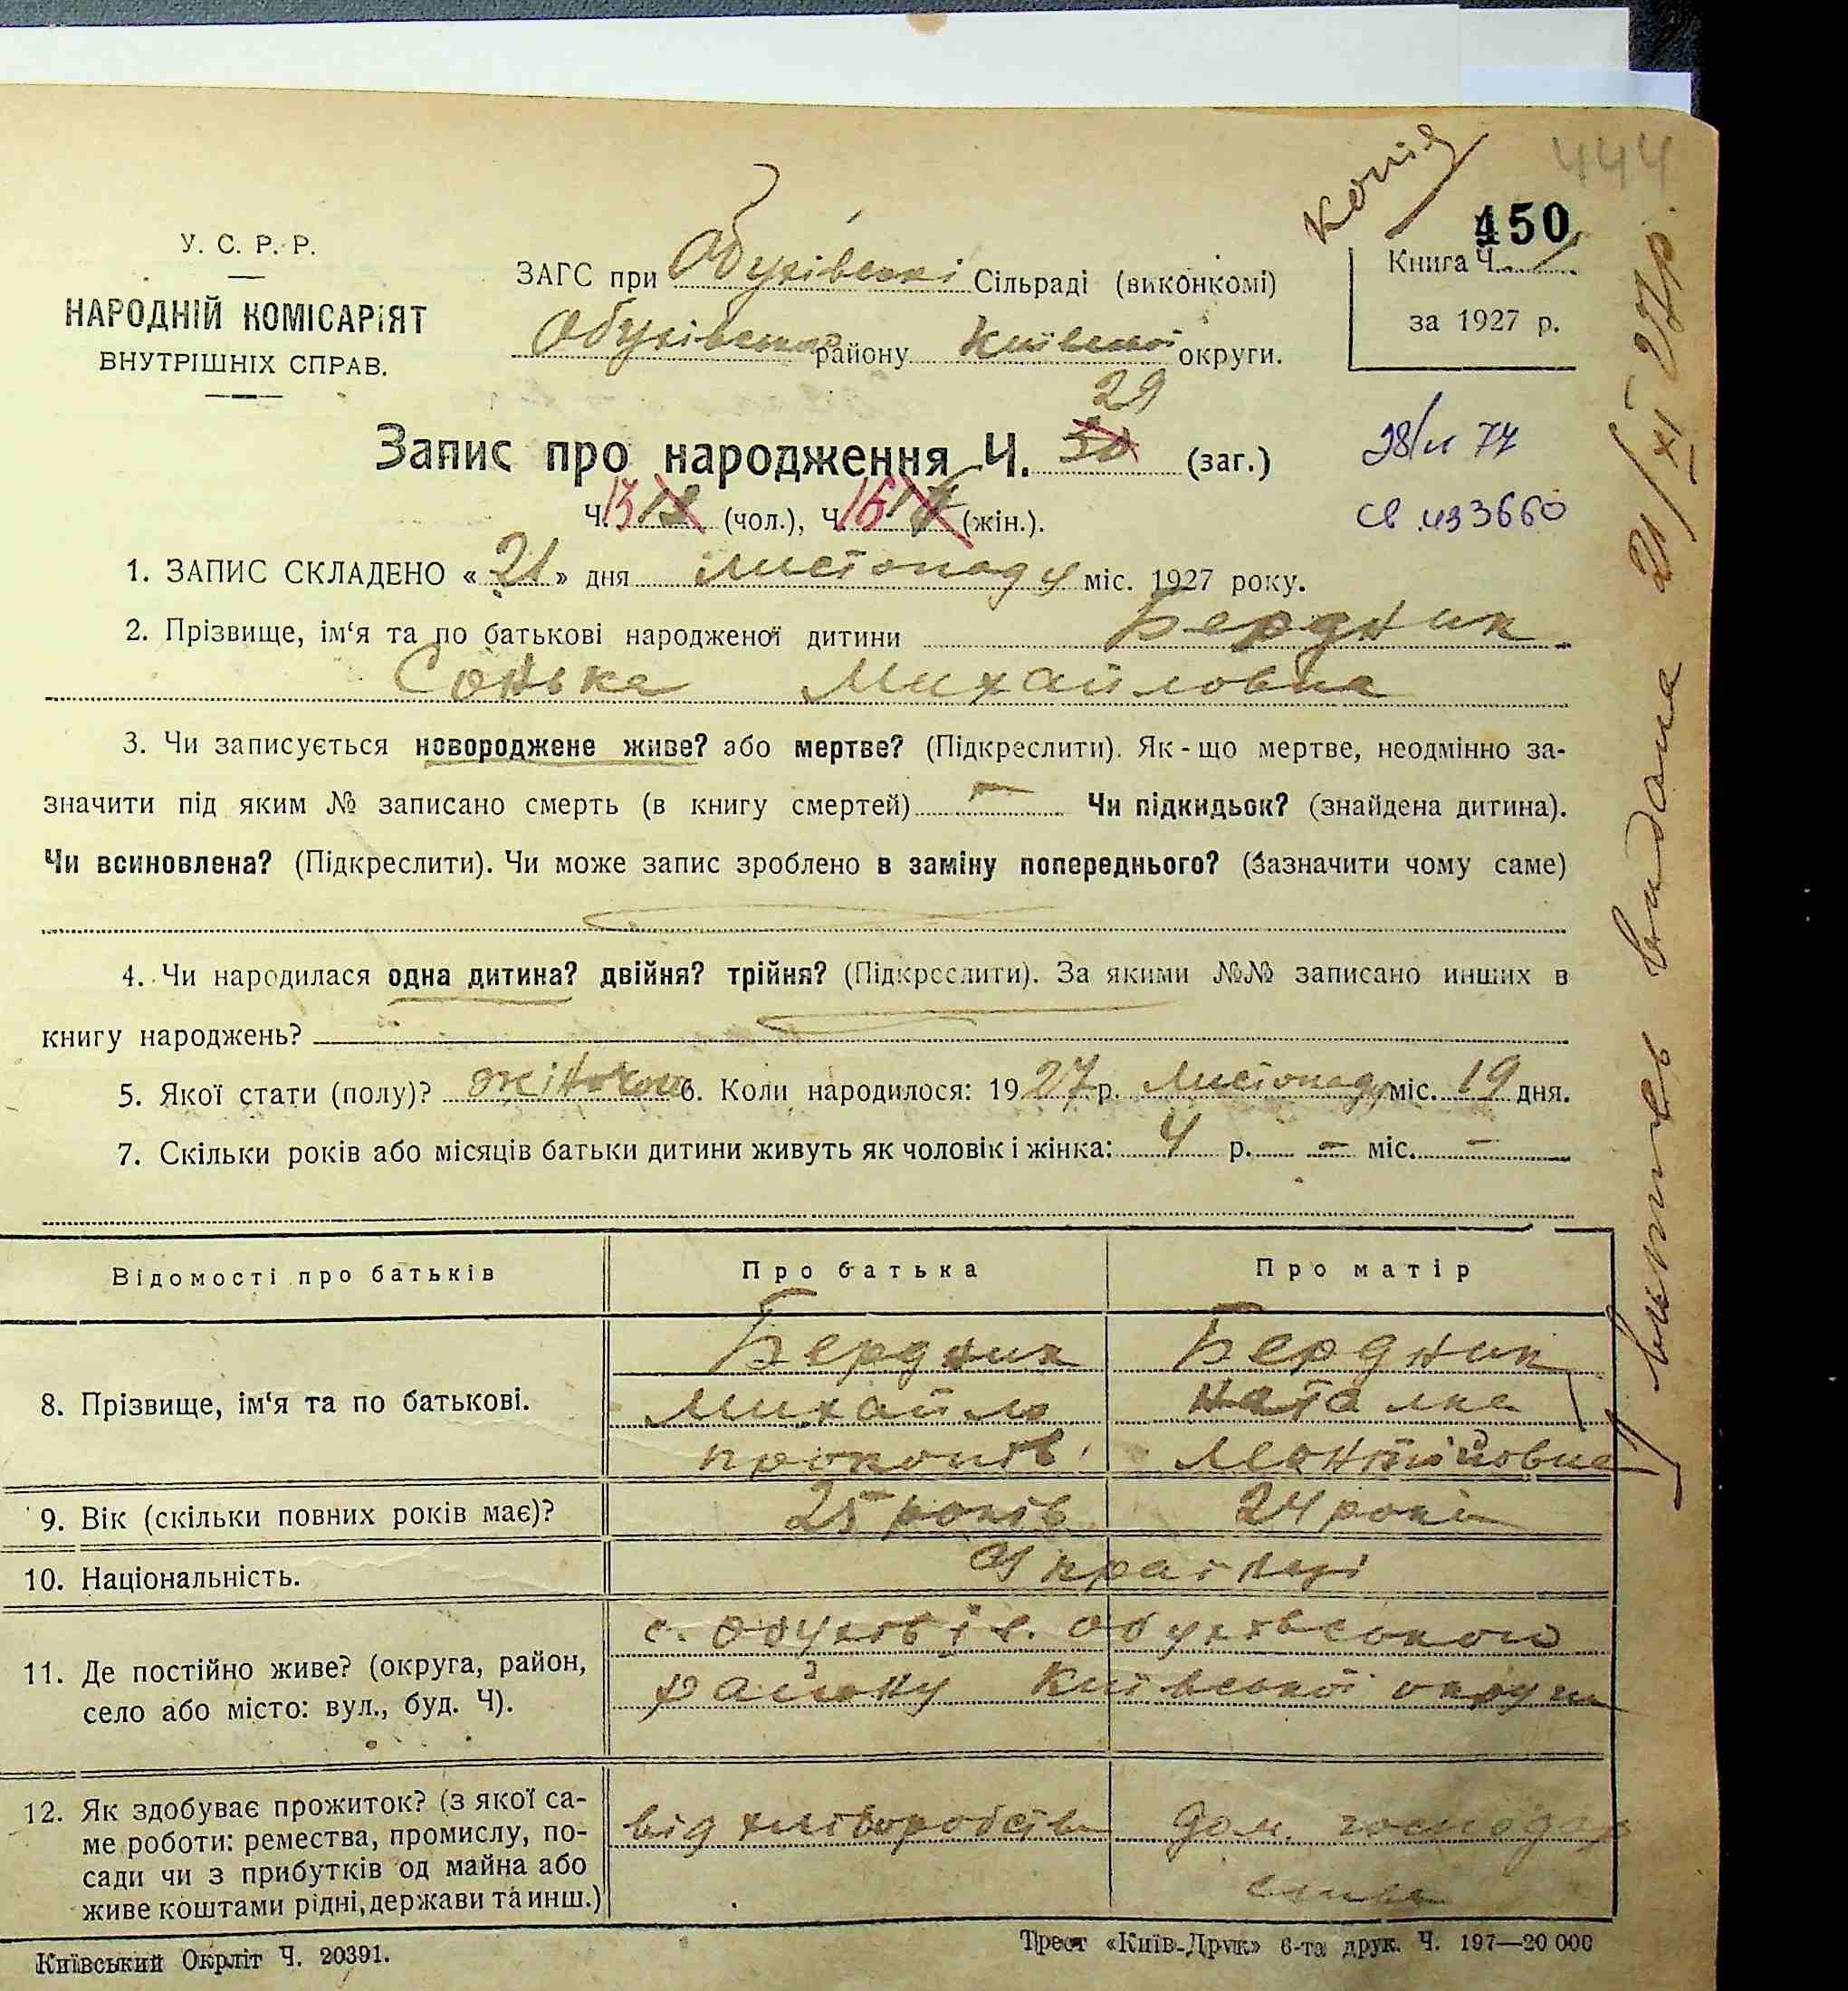 копія
444
450
У. С. Р. Р.
НАРОДНІЙ КОМІСАРІЯТ
ВНУТРІШНІХ СПРАВ.
ЗАГС при Обухівські Сільраді (виконкомі)
Обухівського району Київської округи.
Книга Ч. 1
за 1927 р.
29
Запис про народження Ч. 30 (заг.)
Ч. 13 (чол.), Ч. 16 17 (жін.).
28/II 77
св. 433660
1. ЗАПИС СКЛАДЕНО « 21 » дня листопаду міс. 1927 року.
2. Прізвище, ім‘я та по батькові народженої дитини Бердник
Сонька Михайловна
3. Чи записується новороджене живе? або мертве? (Підкреслити). Як-що мертве, неодмінно за-
значити під яким № записано смерть (в книгу смертей) — Чи підкидьок? (знайдена дитина).
Чи всиновлена? (Підкреслити). Чи може запис зроблено в заміну попереднього? (Зазначити чому саме)
4. Чи народилася одна дитина? двійня? трійня? (Підкреслити). За якими №№ записано инших в
книгу народжень?
5. Якої стати (полу)? жіночої 6. Коли народилося: 1927 р. Листопаду міс. 19 дня.
7. Скільки років або місяців батьки дитини живуть як чоловік і жінка: 4 р. — міс. —
Відомості про батьків Про батька Про матір
8. Прізвище, ім‘я та по батькові.
Бердник Бердник
Михайло Наталка
прокопів Леонтійовна
9. Вік (скільки повних років має)? 25 років 24 роки
10. Національність. Українці
11. Де постійно живе? (округа, район,
село або місто: вул., буд. Ч).
с. Обухів Обухівського
району Київської округи
12. Як здобуває прожиток? (з якої са-
ме роботи: ремества, промислу, по-
сади чи з прибутків од майна або
живе коштами рідні, держави та инш.)
від хліборобства дом. господар
ства
Київський Окрліт Ч. 20391.
Трест «Київ-Друк» 6-та друк. Ч. 197—20 000
випись видана 21/XI 27р.